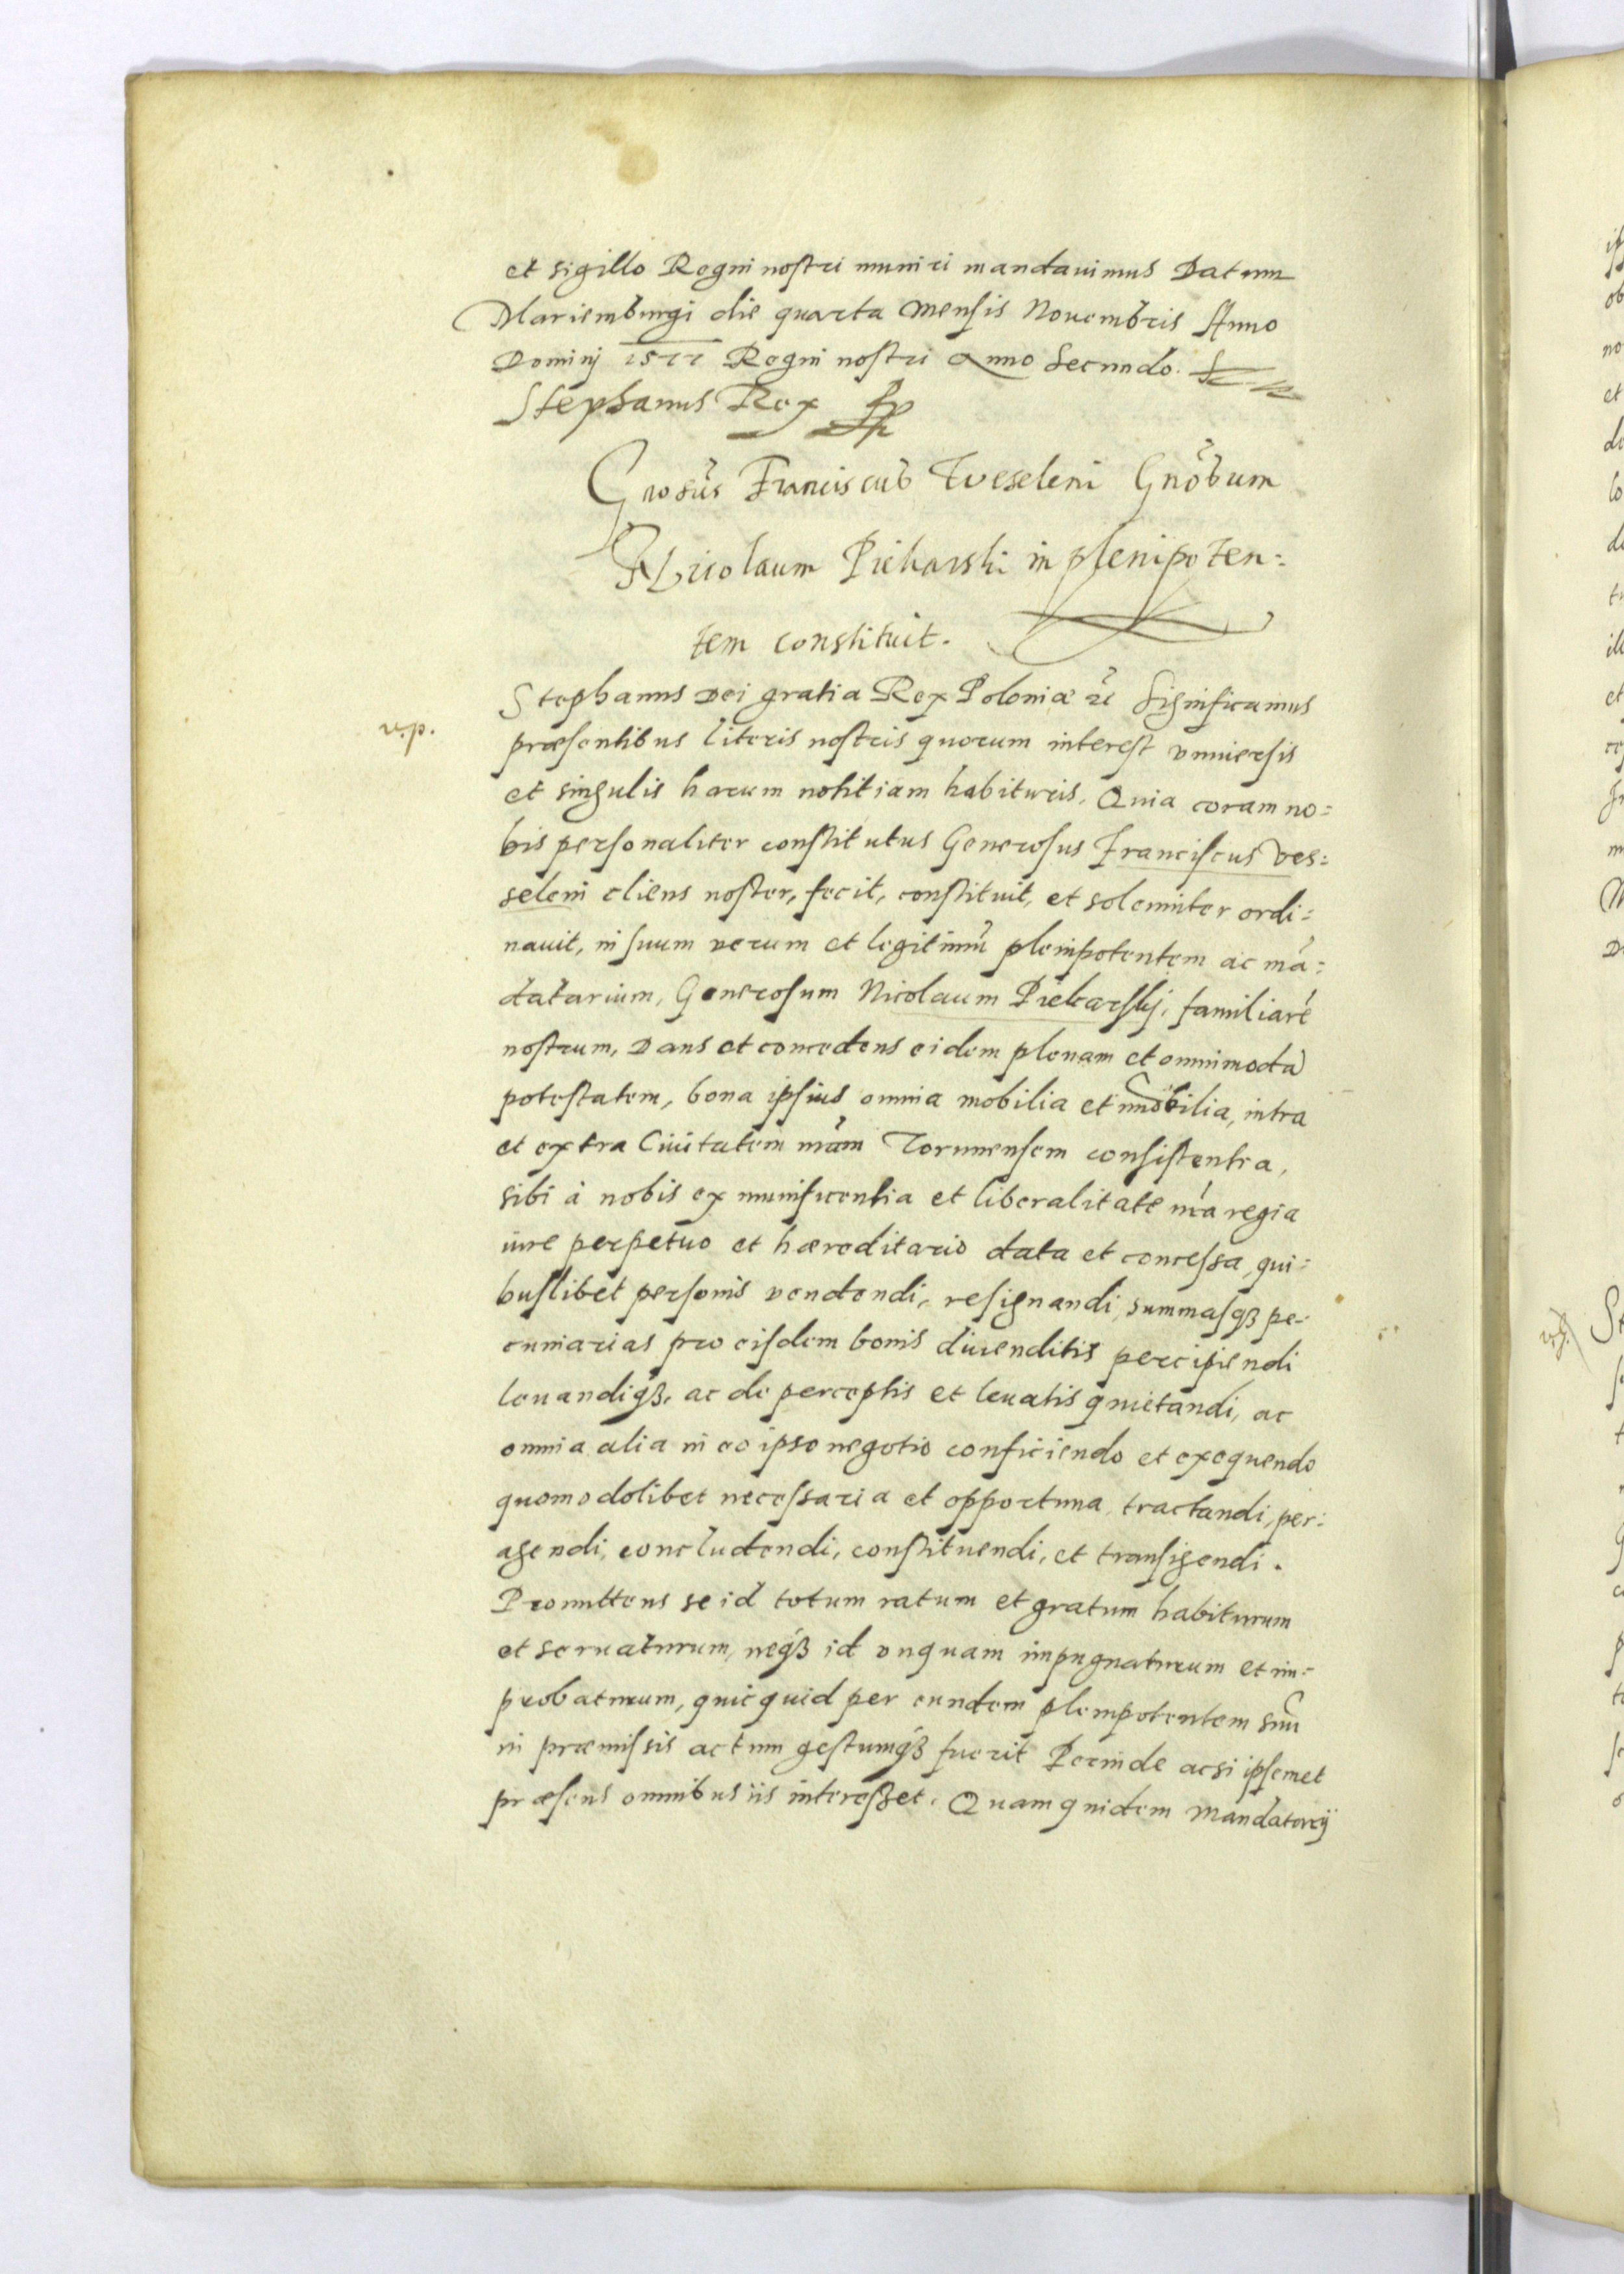 et sigillo Regni nostri muniri mandauimus Datum
Mariemburgi die quarta Mensis Nouembris Anno
Dominj 1577 Regni nostri Anno Secundo.
Stephanus Rex
Gnosus Franciscus Weseleni Gnōbum
Nicolaum Piekarski in plenipoten:
tem constituit.
Stephanus Dei gratia Rex Poloniæ ꝛc Significamus
v.p.
præsentibus literis nostris quorum interest vniuersis
et singulis harum notitiam habituris, Quia coram no:
bis personaliter constitutus Generosus Franciscus ves:
seleni cliens noster, fecit, constituit, et solemniter ordi:
nauit, in suum verum et legitimū plenipotentem ac mā:
datarium, Generosum Nicolaum Piekarskj, familiarē
nostrum, Dans et concedens eidem plenam et omnimodā
potestatem, bona ipsius omnia mobilia et immobilia, intra
et extra Ciuitatem nrām Torunensem consistentia,
sibi à nobis ex munificentia et liberalitate nrā regia
iure perpetuo et hæreditario data et concessa, qui:
buslibet personis vendendi, resignandi, summasqȝ pe-
cuniarias pro eisdem bonis diuenditis percipiendi
leuandiqȝ, ac de perceptis et leuatis quietandi, ac
omnia alia in eo ipso negotio conficiendo et exequendo
quomodolibet necessaria et opportuna, tractandi, per:
agendi, concludendi, constituendi, et transigendi.
Promittens se id totum ratum et gratum habiturum
et seruaturum, neqȝ id vnquam impugnaturum et im:
probaturum, quicquid per eundem plenipotentem suū
in præmissis actum gestumqȝ fuerit Perinde acsi ipsemet
præsens omnibus iis interesset. Quamquidem Mandatorij